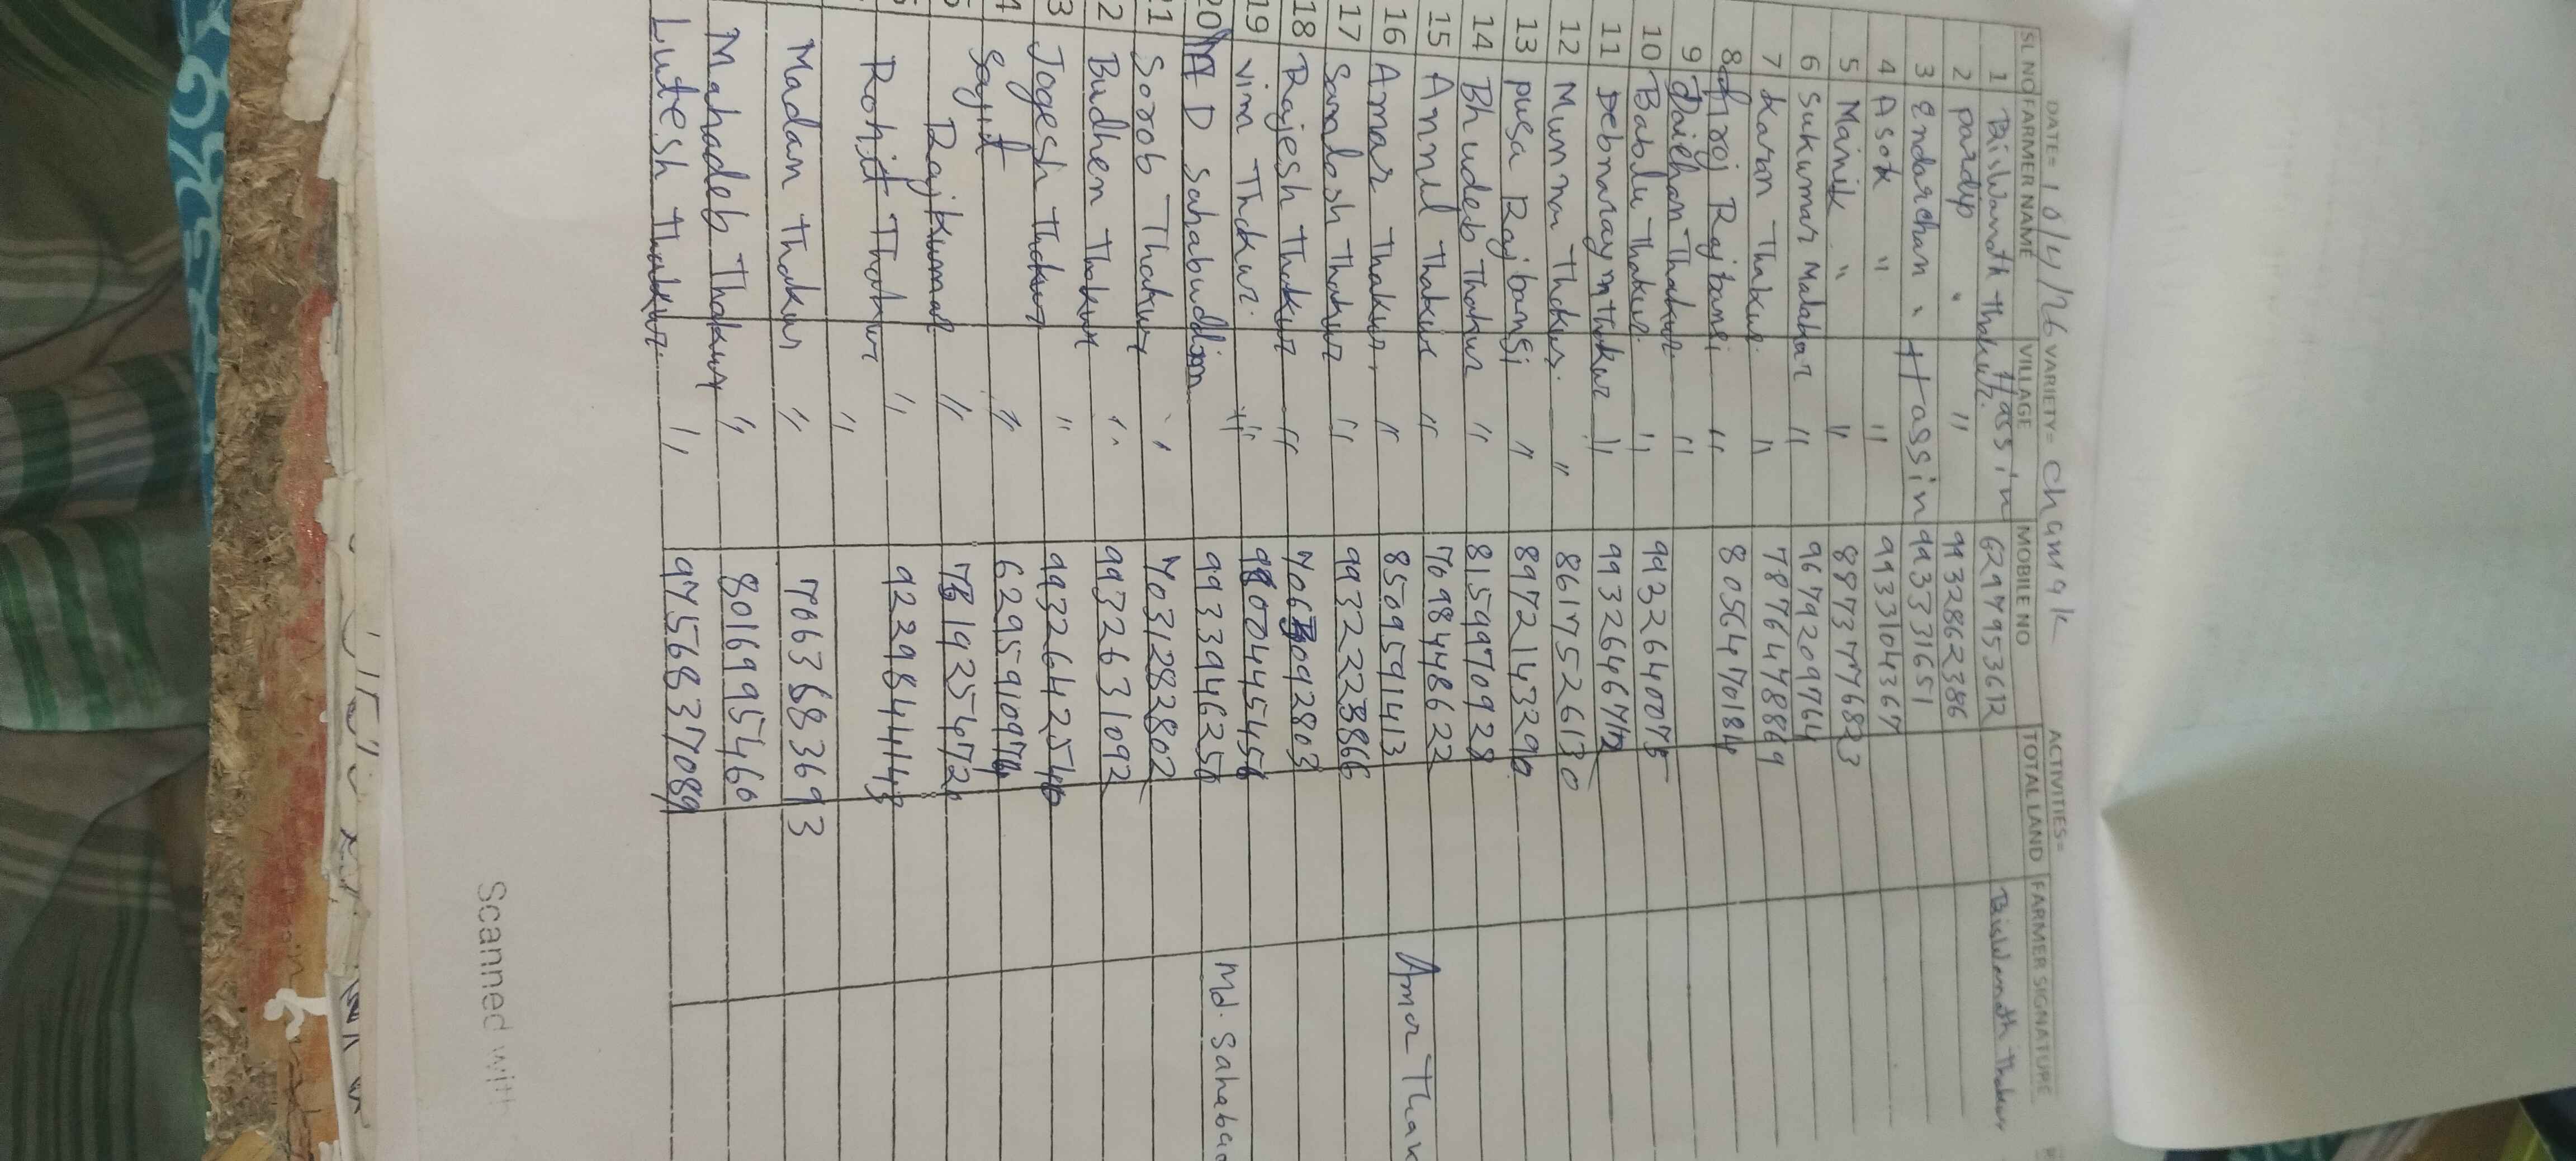 DATE= 10/4/26 VARIETY= Chamak ACTIVITIES=
SL NO FARMER NAME VILLAGE MOBILE NO TOTAL LAND FARMER SIGNATURE
1 BisWanath Thakur. Hassin 6297953612 BisWanath Thakur
2 pardip " " 9932862386
3 endarchan " Hassin 993331651
4 Asok " " 9933104367
5 Mainik " " 8873776823
6 Sukumar Malakar " 9679209764
7 Karan Thakur. " 7876478869
8 Rajbansi " 8056470184
9 Thakur "
10 Bablu Thakur. " 9932640075
11 Debnaraymthakur "
12 Munna Thakur. " 8617526130
13 pusa Rajbansi "
14 Bhudeb Thakur " 8159970928
15 Annil Thakur " 7698448622
16 Amar Thakur, " 8509591413 Amar Thak
17 Sandosh Thakur " 9932223866
18 Rajesh Thakur "
19 vim Thakur. "
20 D Sahabuddin 9933946256 Md. Sahabu
21 Sorob Thakur " 7031282802
2 Budhen Thakur " 9932631092
3 Jogesh Thakur "
4 Sajit "
Rajkumar "
Rohit Thakur "
"
Madan Thakur " 7063683693
Mahadeb Thakur " 8016995466
Lutesh Thakur. " 9756837089
Scanned with